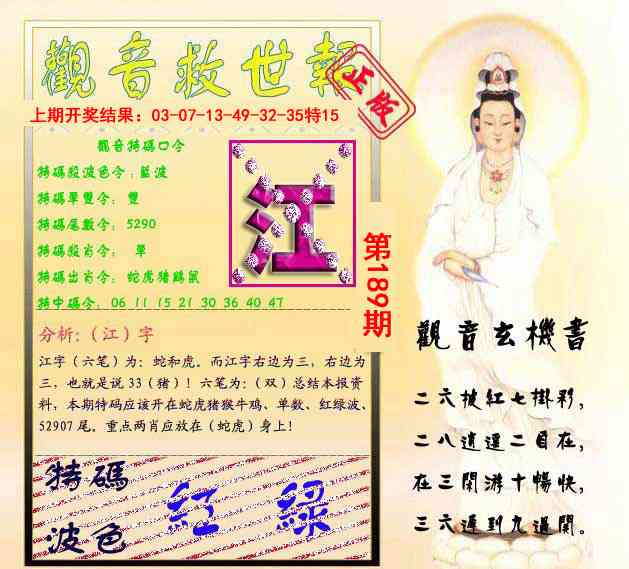 觀音救世報
正版
上期开奖结果：03-07-13-49-32-35特15
觀音特碼口令
特碼殺波色令：藍波
特碼單雙令：雙
特碼尾數令：5290
特碼殺肖令：單
特碼出肖令：蛇虎猪鷄鼠
特中碼令：06 11 15 21 30 36 40 47
江
第189期
分析:（江）字
江字（六笔）为：蛇和虎。而江字右边为三，右边为
三，也就是说 33（猪）！六笔为：（双）总结本报资
料，本期特码应该开在蛇虎猪猴牛鸡、单数、红绿波、
52907 尾。重点两肖应放在（蛇虎）身上！
特碼
波色
紅 綠
觀音玄機書
二六披紅七掛彩，
二八逍遥二自在，
在三閑游十暢快，
三六遲到九過關。